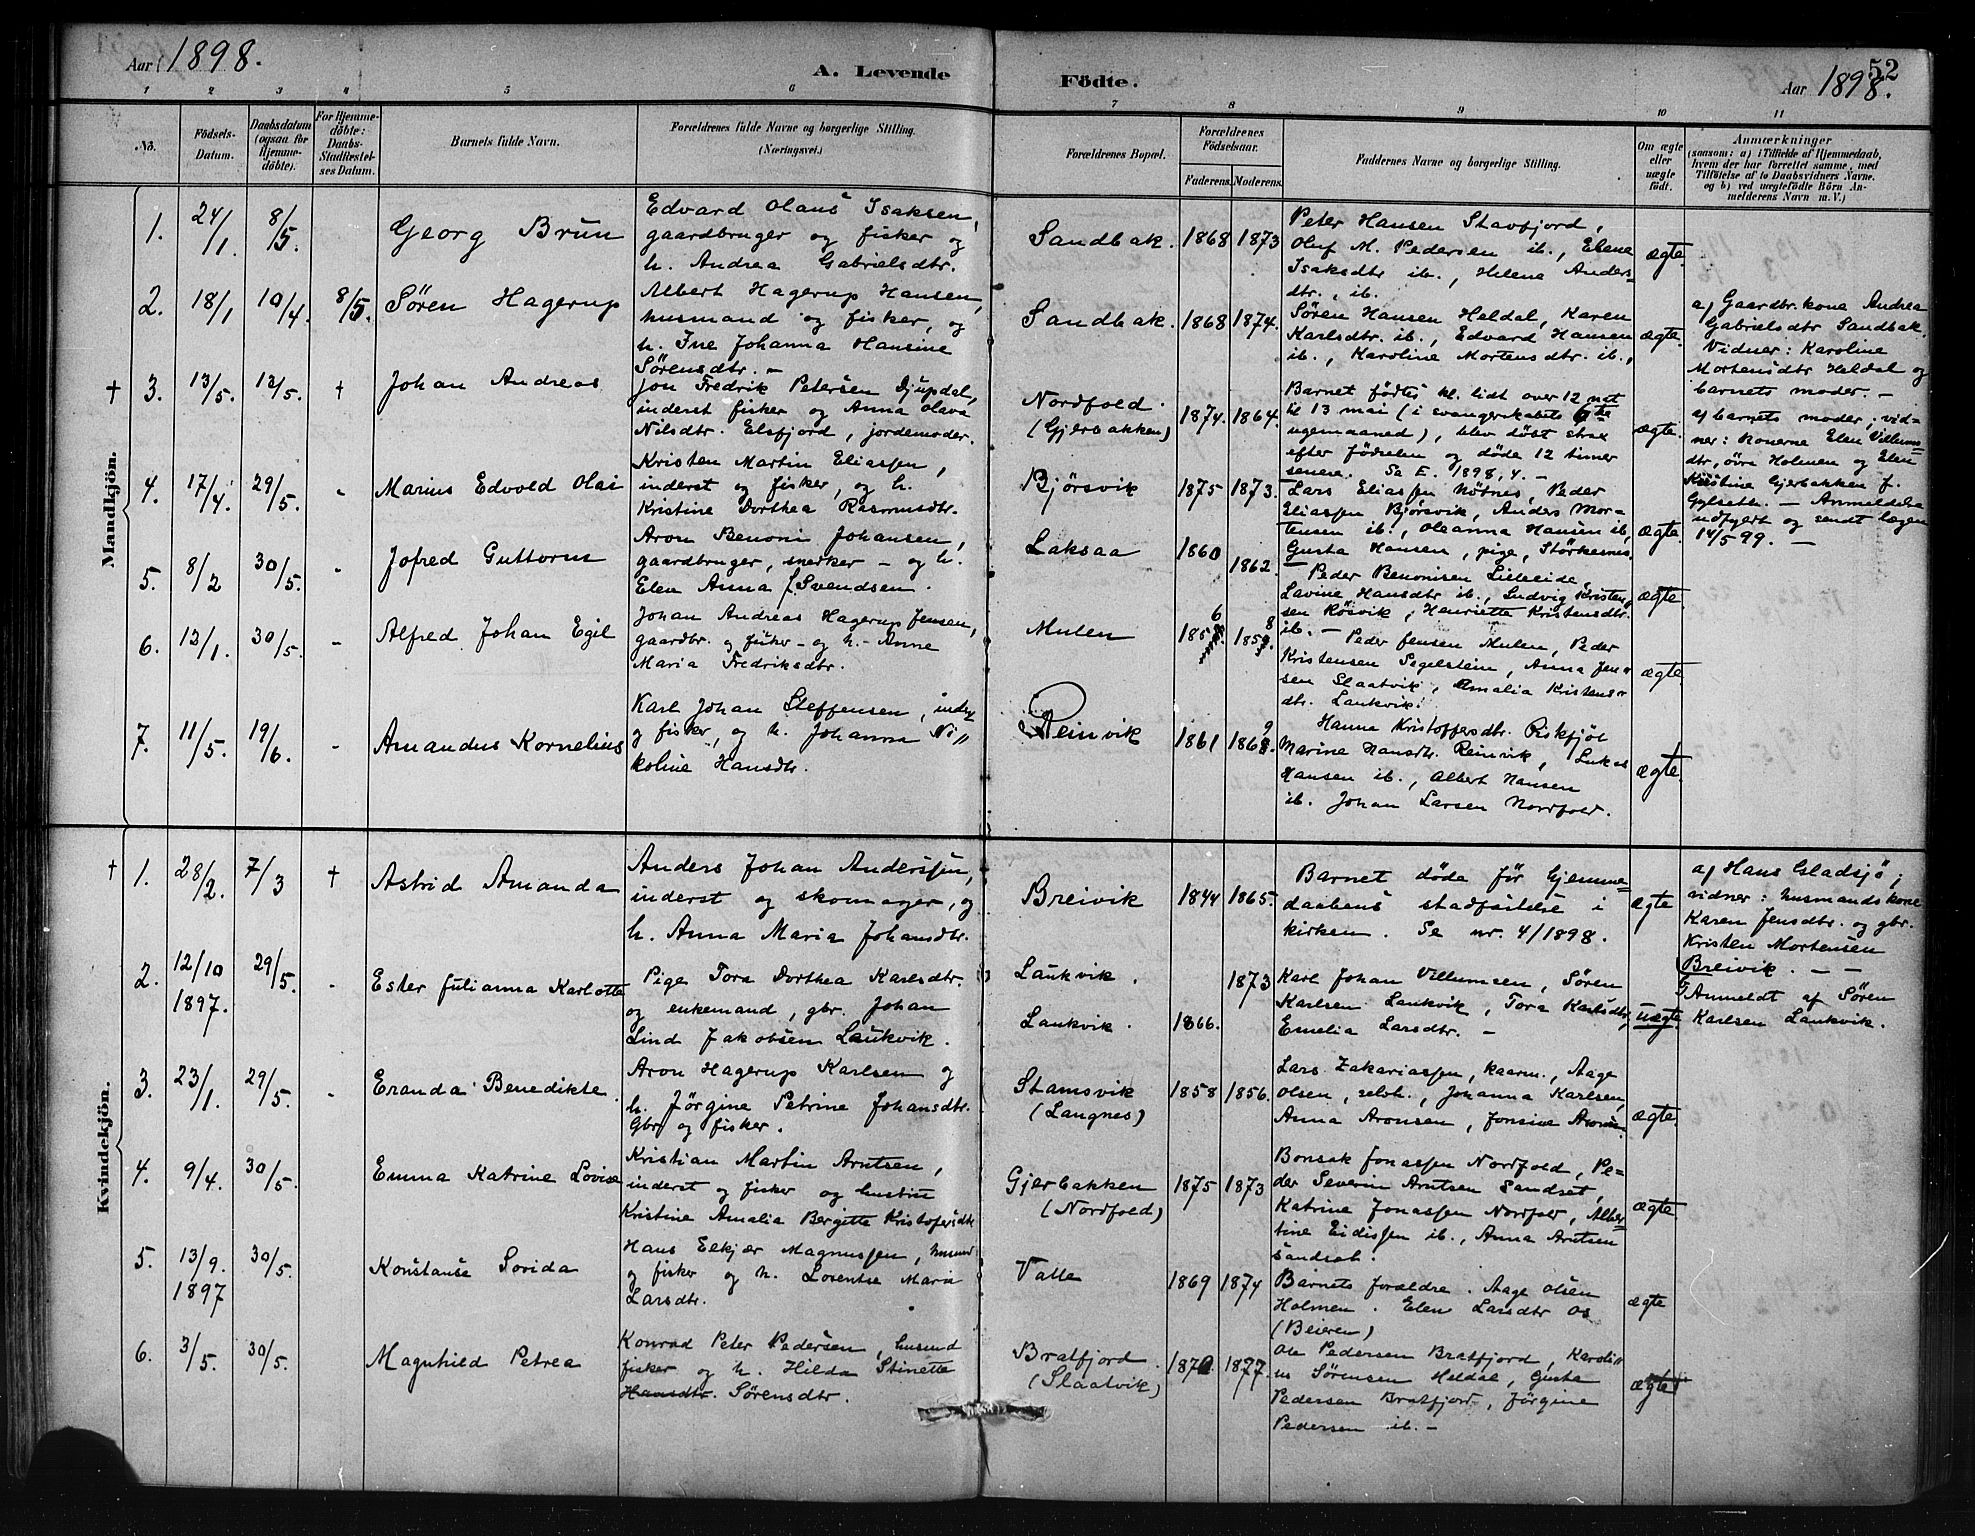 Aar 1898.
A. Levende Födte.
52
Aar 1898.
1 2 3 4 5 6 7 8 9 10 11
No.
Födsels-
Datum.
Daabsdatum
(ogsaa for
Hjemme-
döbte).
For Hjemme-
döbte:
Daabs-
Stadfestel-
ses Datum.
Barnets fulde Navn.
Forældrenes fulde Navne og borgerlige Stilling.
(Næringsvei.)
Forældrenes Bopæl.
Forældrenes
Födselsaar.
Faderens. Moderens.
Faddernes Navne og borgerlige Stilling.
Om ægte
eller
uægte
födt.
Anmærkninger
(saasom: a) i Tilfælde af Hjemmedaab,
hvem der har forrettet samme, med
Tilföielse af to Daabsvidners Navne,
og b) ved uægtefödte Börn An-
melderens Navn m. V.)
Mandkjön.
1. 24/1. 8/5. Georg Brun
Edvard Olaus Isaksen,
gaardbruger og fisker og
h. Andrea Gabrielsdtr.
Sandbak. 1868 1873
Peter Hansen Stavfjord,
Oluf M. Pedersen ib., Elene
Isaksdtr ib., Helena Anders-
dtr., ib.
ægte.
2. 18/1 10/4. 8/5. Sören Hagerup
Albert Hagerup Hansen,
husmand og fisker, og
h. Ine Johanna Hansine
Sörensdtr. -
Sandbak. 1868 1874.
Sören Hansen Heldal, Karen
Karlsdtr. ib., Edvard Hansen
ib., Karoline Mortensdtr. ib.,
ægte.
a) Gaardbr. kone Andrea
Gabrielsdtr Sandbak.
Vidner: Karoline
Mortensdtr Heldal og
barnets moder. -
† 3. 13/5. 13/5. † Johan Andreas
Jon Fredrik Petersen Djupdal,
inderst fisker og Anna Olava
Nilsdtr. Elsfjord, jordemoder.
Nordfold.
(Gjerbakken) 1874. 1864.
Barnet födtes kl. lidt over 12 nat
til 13 mai (i svangerskabets 6te
ugemaaned), blev döbt strax
efter födselen og döde 12 timer
senere. Se E. 1898, 4. -
ægte.
a) barnets moder; vid-
ner: konerne Elen Villums-
dtr, övre Holmen og Elen
Kristine Gjerbakken f.
Gylseth. - Anmeldelse
udfyert og sendt lægen
14/5 99. -
4. 17/4. 29/5. - Marius Edvold Olai
Kristen Martin Eliassen,
inderst og fisker, og h.
Kristine Dorthea Rasmusdtr.
Björsvik 1875 1873.
Lars Eliassen Nötnes, Peder
Eliassen Björsvik, Anders Mor-
tensen ib., Oleanna Hansen ib.,
Gusta Hansen, pige, Störkernes
ægte.
5. 8/2 30/5. - Jofred Guttorm
Aron Benoni Johansen,
gaardbruger, snerker - og h.
Elen Anna f. Svendsen.
Laksaa 1860 1862.
Peder Benonisen Lilleeide,
Lavine Hansdtr ib., Ludvig Kristen-
sen Rösvik, Henriette Kristensdtr.
ib. -
ægte.
6. 13/1. 30/5. - Alfred Johan Egil
Johan Andreas Hagerup Jensen,
gaardbr. og fisker - og h. - Anne
Maria Fredriksdtr.
Mulen
Peder Jensen Mulen, Peder
Kristensen Segelstein, Anna Jen-
sen Slaatvik, Amalia Kristens-
dtr. Laukvik.
ægte.
7. 11/5. 19/6. - Amandus Kornelius
Karl Johan Steffensen, indr.
og fisker, og h. Johanna Ni-
koline Hansdtr.
Reinvik 1861
Hanna Kristoffersdtr.
Marine Hansdtr. Reinvik, Lukas
Hansen ib., Albert Hansen
ib. Johan Larsen Nordfold.
ægte.
Kvindekjön.
† 1. 28/2. 7/3 † Astrid Amanda
Anders Johan Anderssen,
inderst og skomager, og
h. Anna Maria Johansdtr.
Breivik 1844 1865.
Barnet döde för hjemme-
daabens stadfæstelse i
kirken. Se nr. 4/1898.
ægte
a) Hans Gladsjö;
vidner: husmandskone
Karen Jensdtr. og gbr.
Kristen Mortensen
Breivik. - -
2. 12/10 1897. 29/5. - Ester Julianna Karlotte
Pige Tora Dorthea Karlsdtr.
og enkemand, gbr. Johan
Lind Jakobsen Laukvik.
Laukvik. 1873
Laukvik. 1866.
Karl Johan Villumsen, Sören
Karlsen Laukvik, Tora Karlsdtr,
Emelia Larsdtr. -
uægte
Anmeldt af Sören
Karlsen Laukvik.
3. 23/1. 29/5. - Eranda Benedikte
Aron Hagerup Karlsen og
h. Jörgine Petrine Johansdtr.
Gbr. og fisker.
Stamsvik
(Langnes) 1858 1856.
Lars Zakariassen, kaarm., Aage
Olsen, selvh., Johanna Karlsen,
Anna Aronsen, Jonsine
ægte.
4. 9/4. 30/5. Emma Katrine Lovise
Kristian Martin Arntsen,
inderst og fisker og hustru
Kristine Amalia Bergitte Kristofersdtr
Gjerbakken
(Nordfold) 1875 1873
Bonsak Jonassen Nordfold, Pe-
der Severin Arntsen Sandset,
Katrine Jonassen Nordfold, Alber-
tine Eidissen ib., Anna Arntsen
Sandset.
ægte.
5. 13/9. 1897 30/5. Konstanse Sovida
Hans Elkjær Magnussen, husmd
og fisker og h. Lorentse Maria
Larsdtr.
Valle 1869 1874
Barnets foreldre. Aage Olsen
Holmen. Elen Larsdtr Os
(Beieren)
ægte
6. 3/5. 30/5. Magnhild Petrea
Konrad Peter Pedersen, husmd
fisker og h. Hilda Stinette
Hansdtr. Sörensdtr.
Bratfjord
(Slaatvik) 1870. 1877.
Ole Pedersen Bratfjord, Karoli-
us Sörensen Heldal, Gusta
Pedersen Bratfjord, Jörgine
Pedersen ib. -
ægte